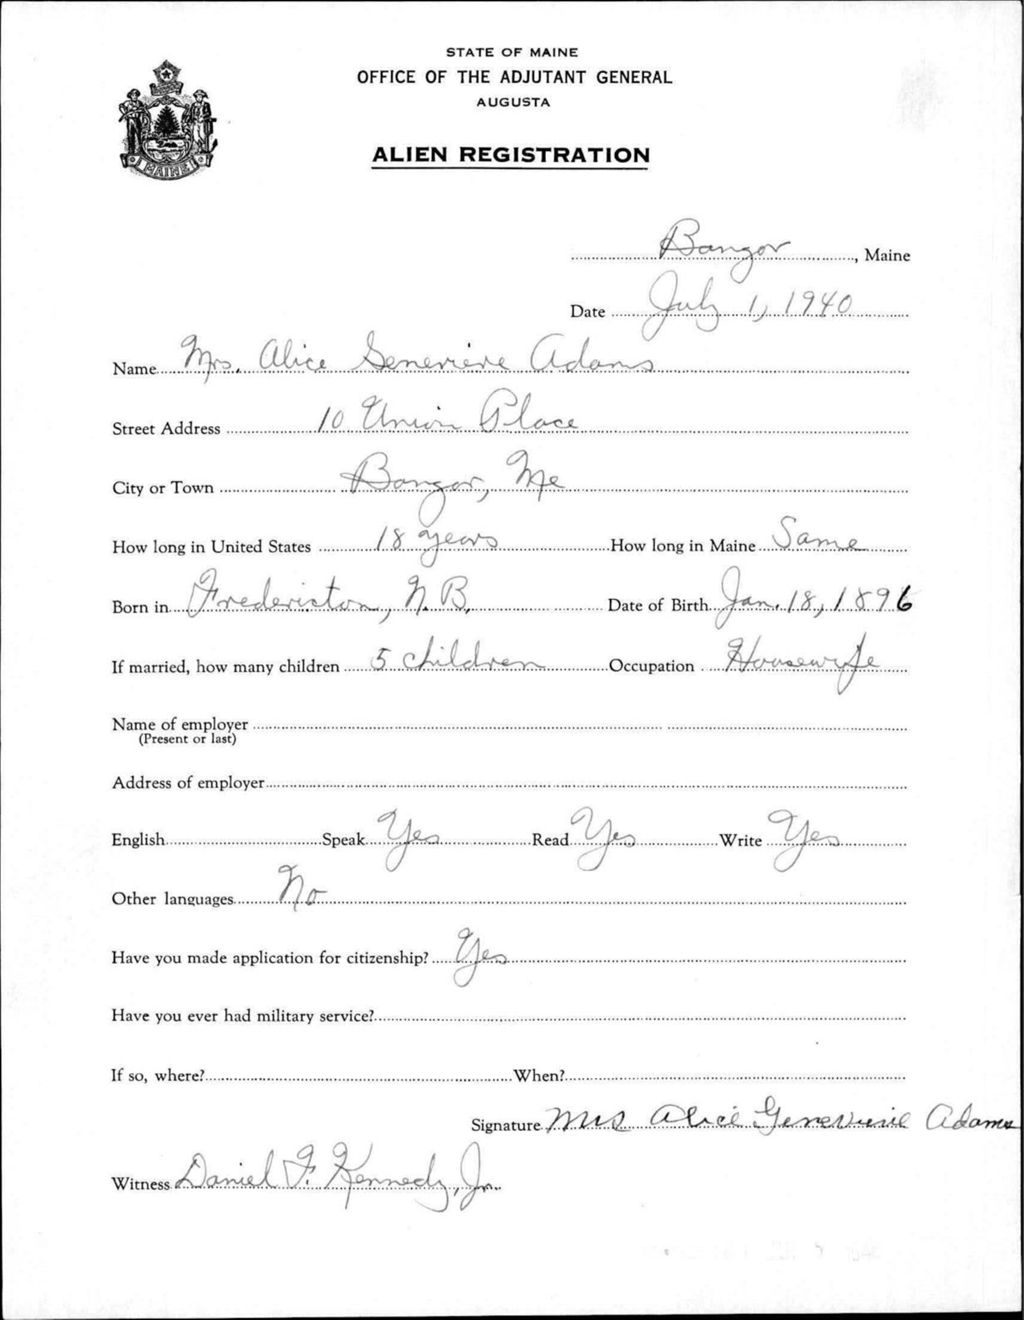 STATE OF MAINE
OFFICE OF THE ADJUTANT GENERAL
AUGUSTA
MAINE
ALIEN REGISTRATION
Bangor, Maine
Date July 1, 1940
Name Mrs. Alice Genevieve Adams
Street Address 10 Union Place
City or Town Bangor, Me
How long in United States 18 years How long in Maine Same
Born in Fredericton, N.B. Date of Birth Jan. 18, 1896
If married, how many children 5 children Occupation Housewife
Name of employer
(Present or last)
Address of employer
English Speak Yes Read Yes Write Yes
Other languages No
Have you made application for citizenship? Yes
Have you ever had military service?
If so, where? When?
Signature Mrs Alice Genevieve Adams
Witness Daniel F. Kennedy, Jr.